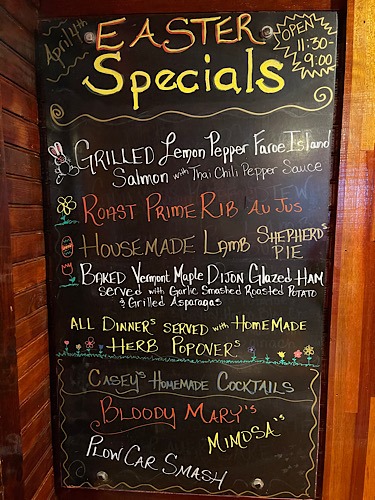 April 4th
EASTER
Specials
OPEN
11:30-
9:00
GRILLED Lemon Pepper Faroe Island
Salmon with Thai Chili Pepper Sauce
ROAST PRIME RIB AU JUS
HOUSEMADE LAMB SHEPHERD'S
PIE
BAKED Vermont Maple DIJON GLAZED HAM
Served with Garlic Smashed Roasted POTATO
& Grilled Asparagus
ALL DINNER'S SERVED with HOMEMADE
HERB POPOVER'S
CASEY'S HOMEMADE COCKTAILS
BLOODY MARY'S
MIMOSA'S
PLOW CAR SMASH